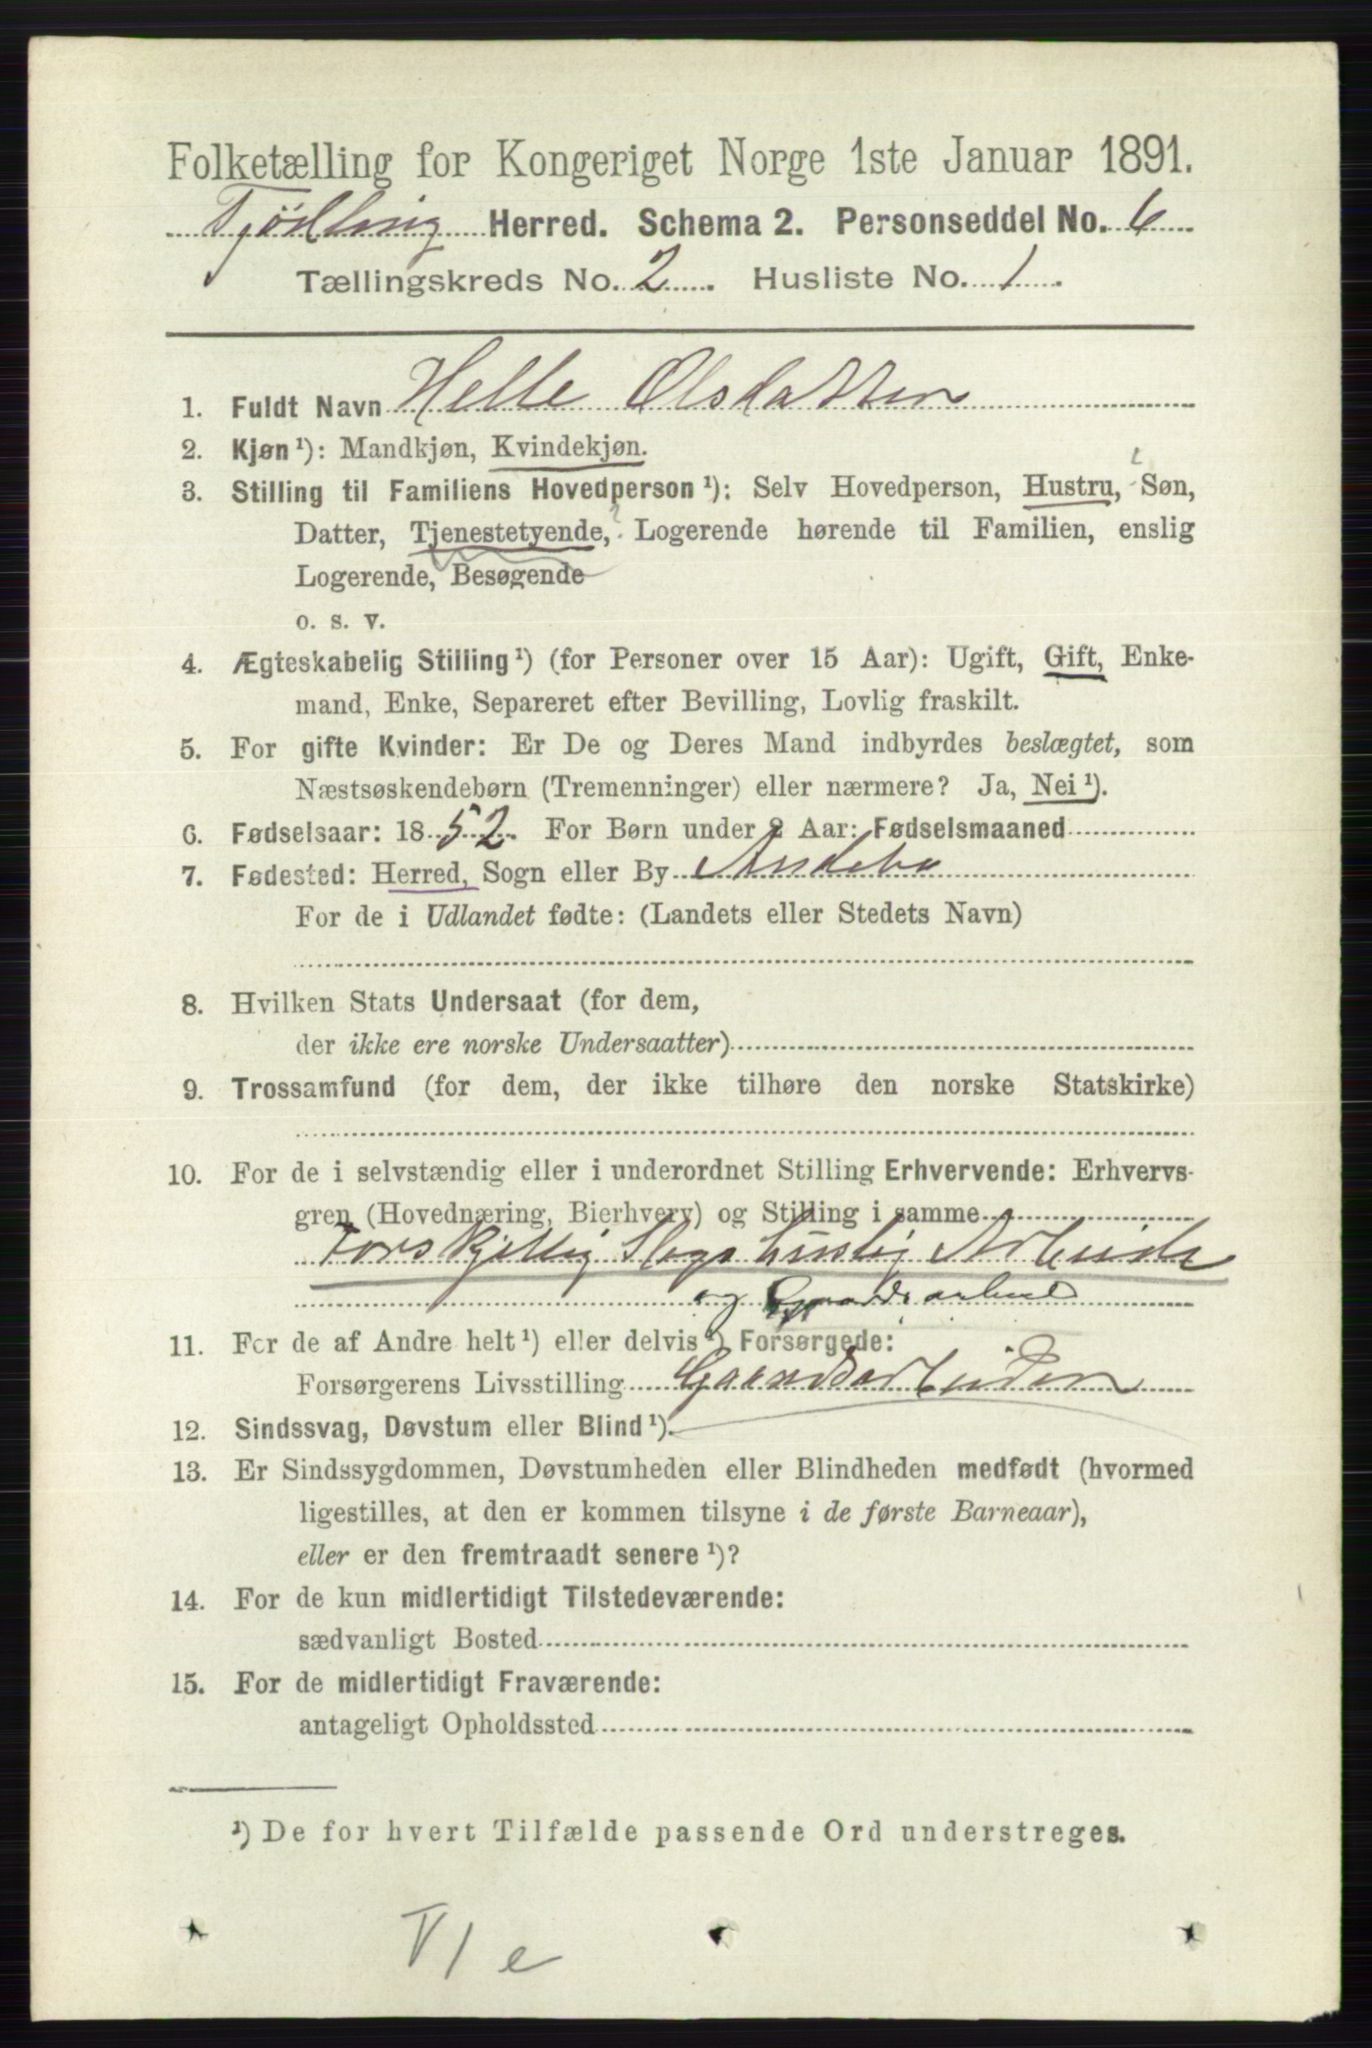 Folketælling for Kongeriget Norge 1ste Januar 1891.
Tjödling Herred. Schema 2. Personseddel No. 6
Tællingskreds No. 2. Husliste No. 1.
1. Fuldt Navn Helle Olsdatter
2. Kjøn ¹): Mandkjøn, Kvindekjøn.
3. Stilling til Familiens Hovedperson ¹): Selv Hovedperson, Hustru, Søn,
Datter, Tjenestetyende, Logerende hørende til Familien, enslig
Logerende, Besøgende
o. s. v.
4. Ægteskabelig Stilling ¹) (for Personer over 15 Aar): Ugift, Gift, Enke-
mand, Enke, Separeret efter Bevilling, Lovlig fraskilt.
5. For gifte Kvinder: Er De og Deres Mand indbyrdes beslægtet, som
Næstsøskendebørn (Tremenninger) eller nærmere? Ja, Nei ¹).
6. Fødselsaar: 1852. For Børn under 2 Aar: Fødselsmaaned
7. Fødested: Herred, Sogn eller By Andebo
For de i Udlandet fødte: (Landets eller Stedets Navn)
8. Hvilken Stats Undersaat (for dem,
der ikke ere norske Undersaatter)
9. Trossamfund (for dem, der ikke tilhøre den norske Statskirke)
10. For de i selvstændig eller i underordnet Stilling Erhvervende: Erhvervs-
gren (Hovednæring, Bierhverv) og Stilling i samme
Forskjellig Slags huslig Arbeide
og Gaardsarbeide
11. For de af Andre helt ¹) eller delvis ¹) Forsørgede:
Forsørgerens Livsstilling Gaardsarbeider
12. Sindssvag, Døvstum eller Blind ¹).
13. Er Sindssygdommen, Døvstumheden eller Blindheden medfødt (hvormed
ligestilles, at den er kommen tilsyne i de første Barneaar),
eller er den fremtraadt senere ¹)?
14. For de kun midlertidigt Tilstedeværende:
sædvanligt Bosted
15. For de midlertidigt Fraværende:
antageligt Opholdssted
¹) De for hvert Tilfælde passende Ord understreges.